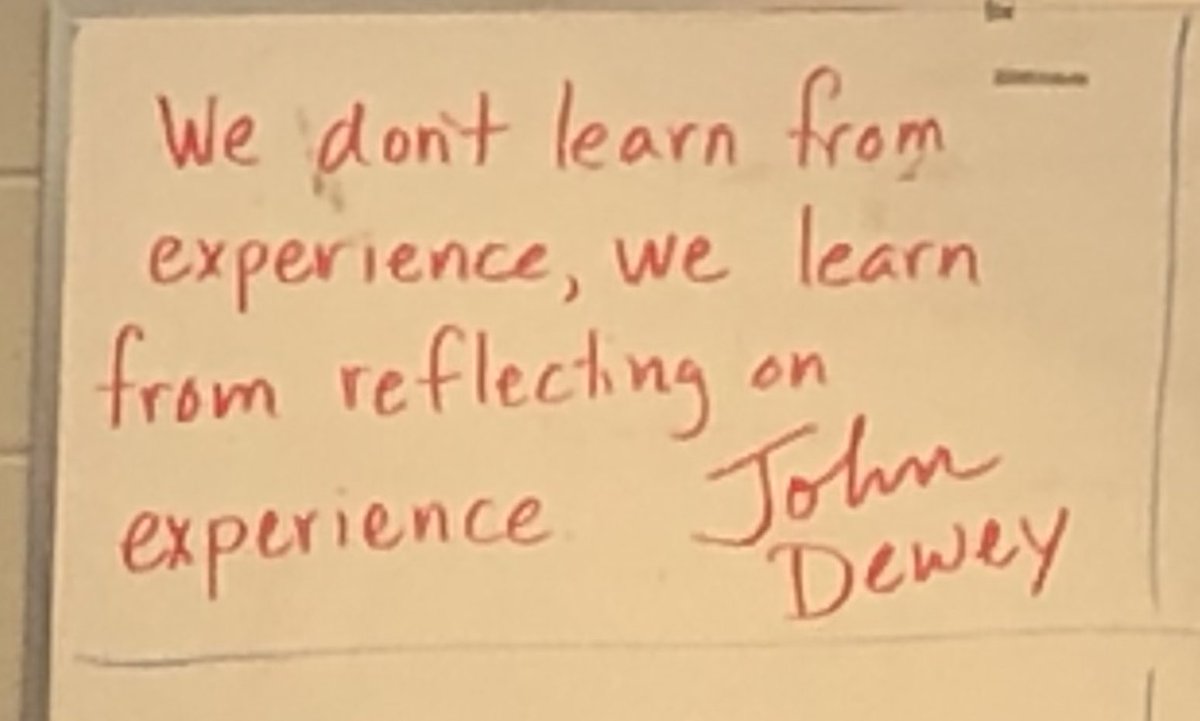 We don't learn from
experience, we learn
from reflecting on
experience
John
Dewey